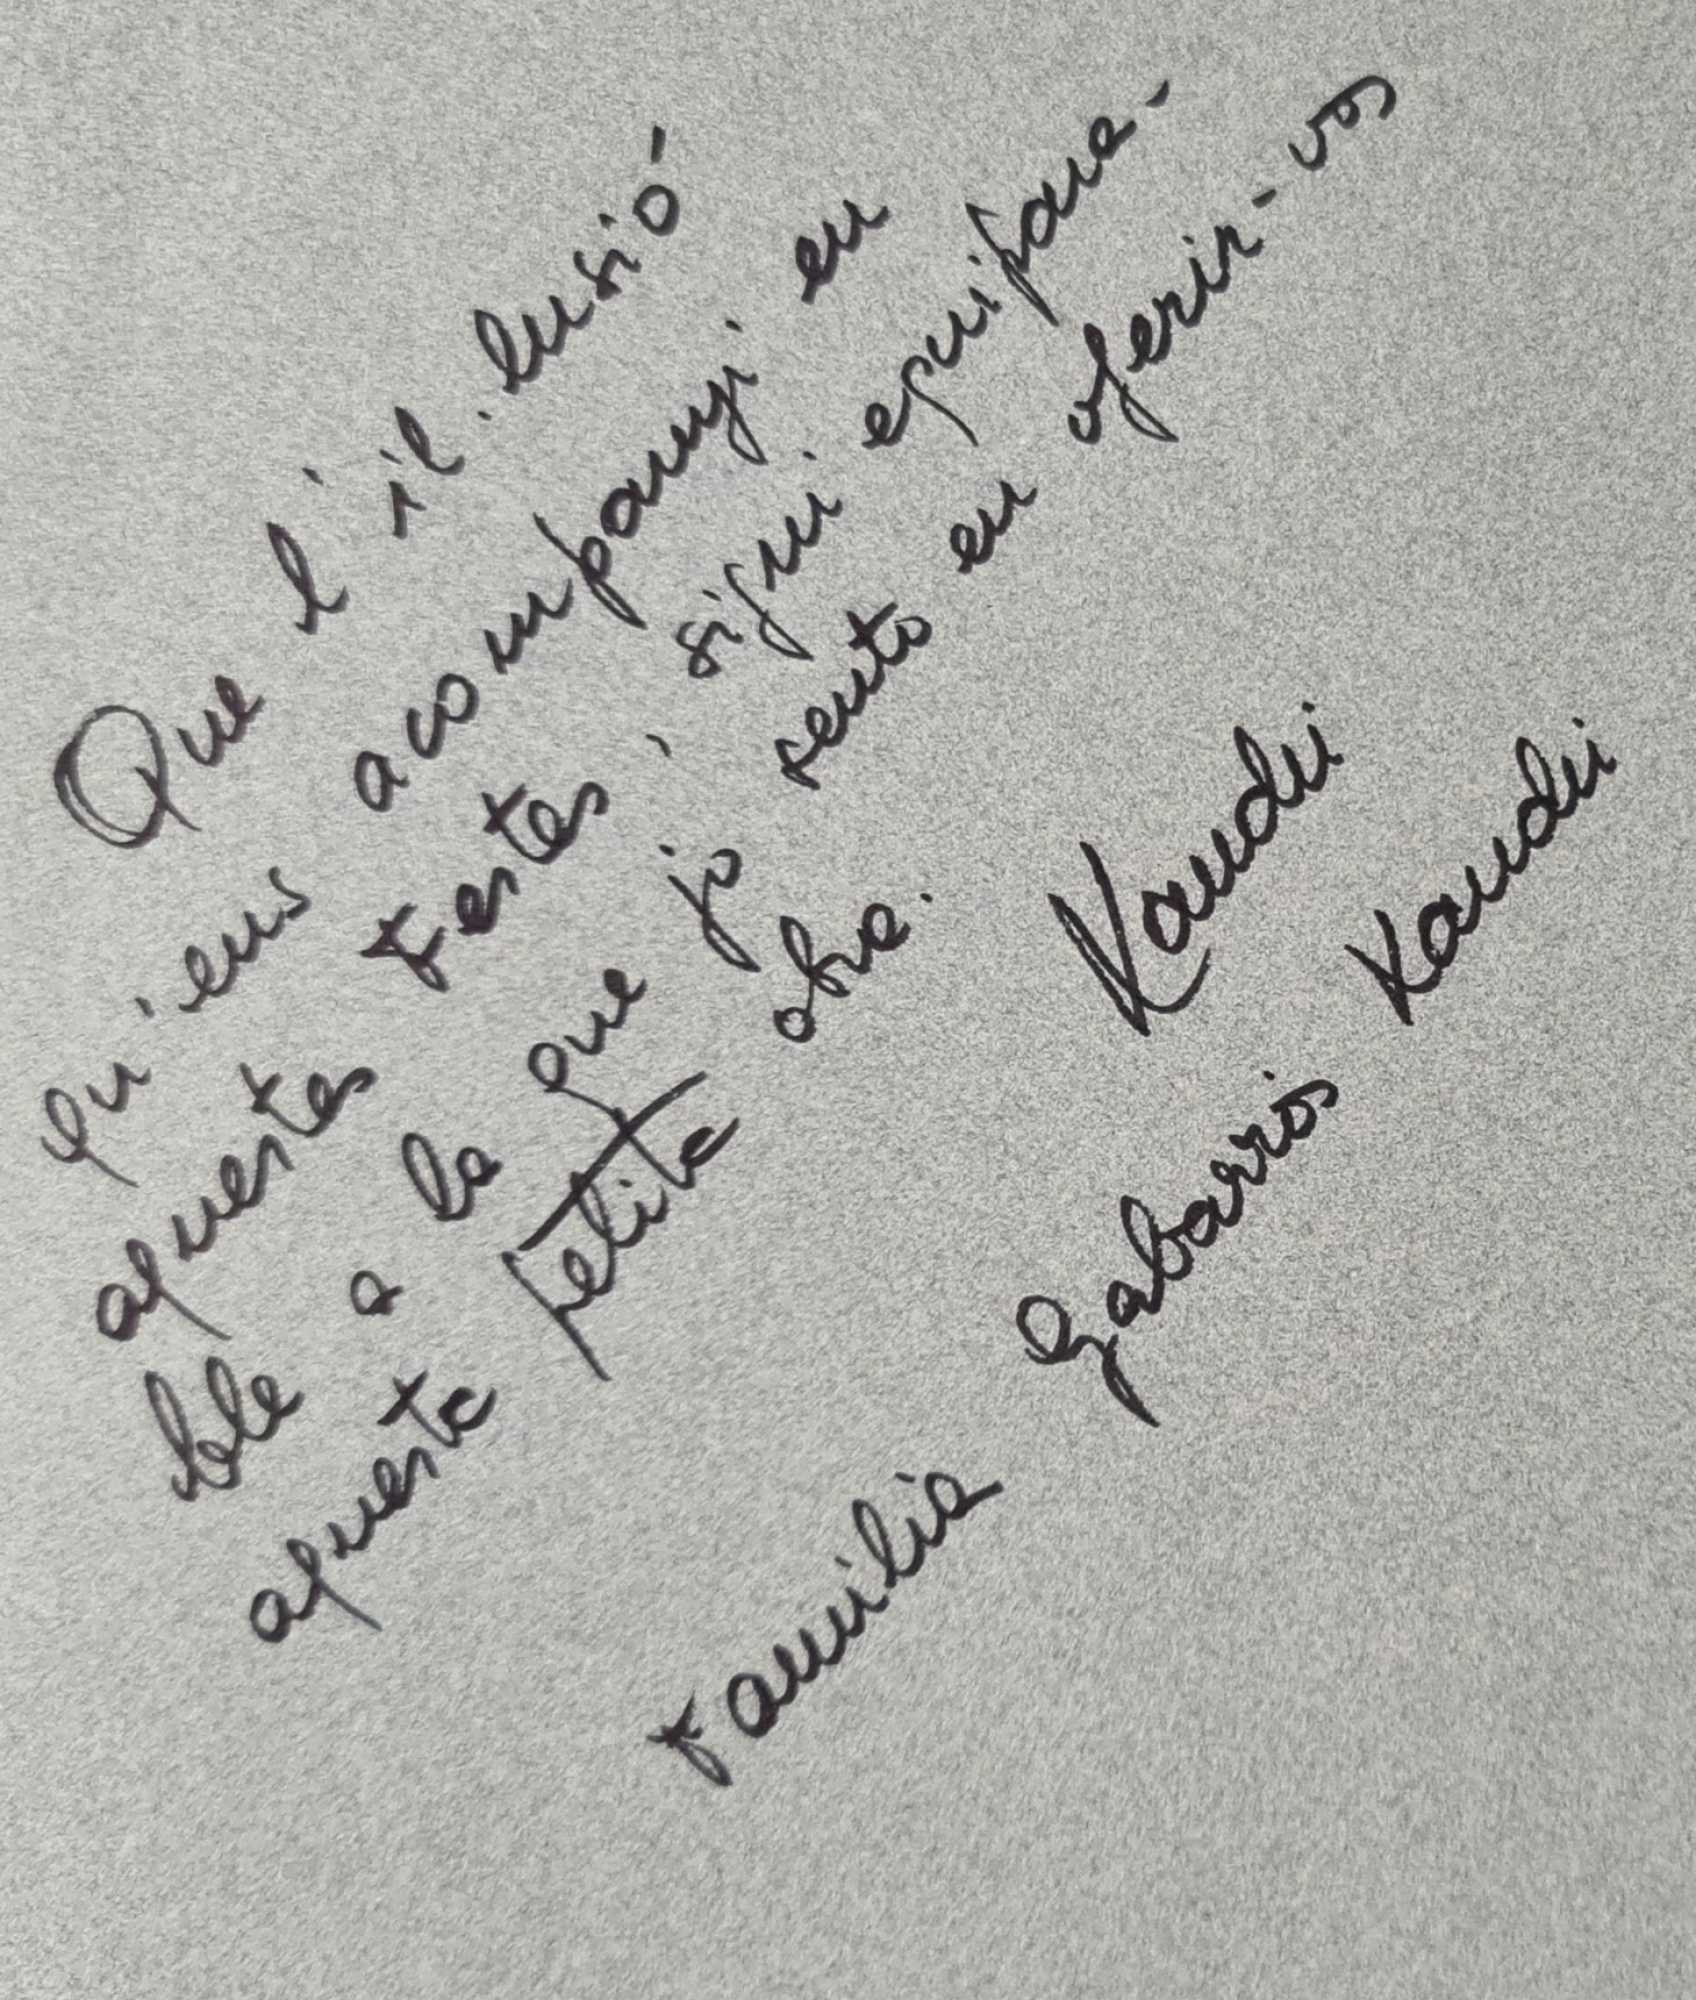 Que l'il·lusió
qu'ens acompanyi en
aquestes Festes, sigui equipara-
ble a la que jo sento en oferir-vos
aquesta petita obra.
Kaudii
Familia Gabarrós Kaudii